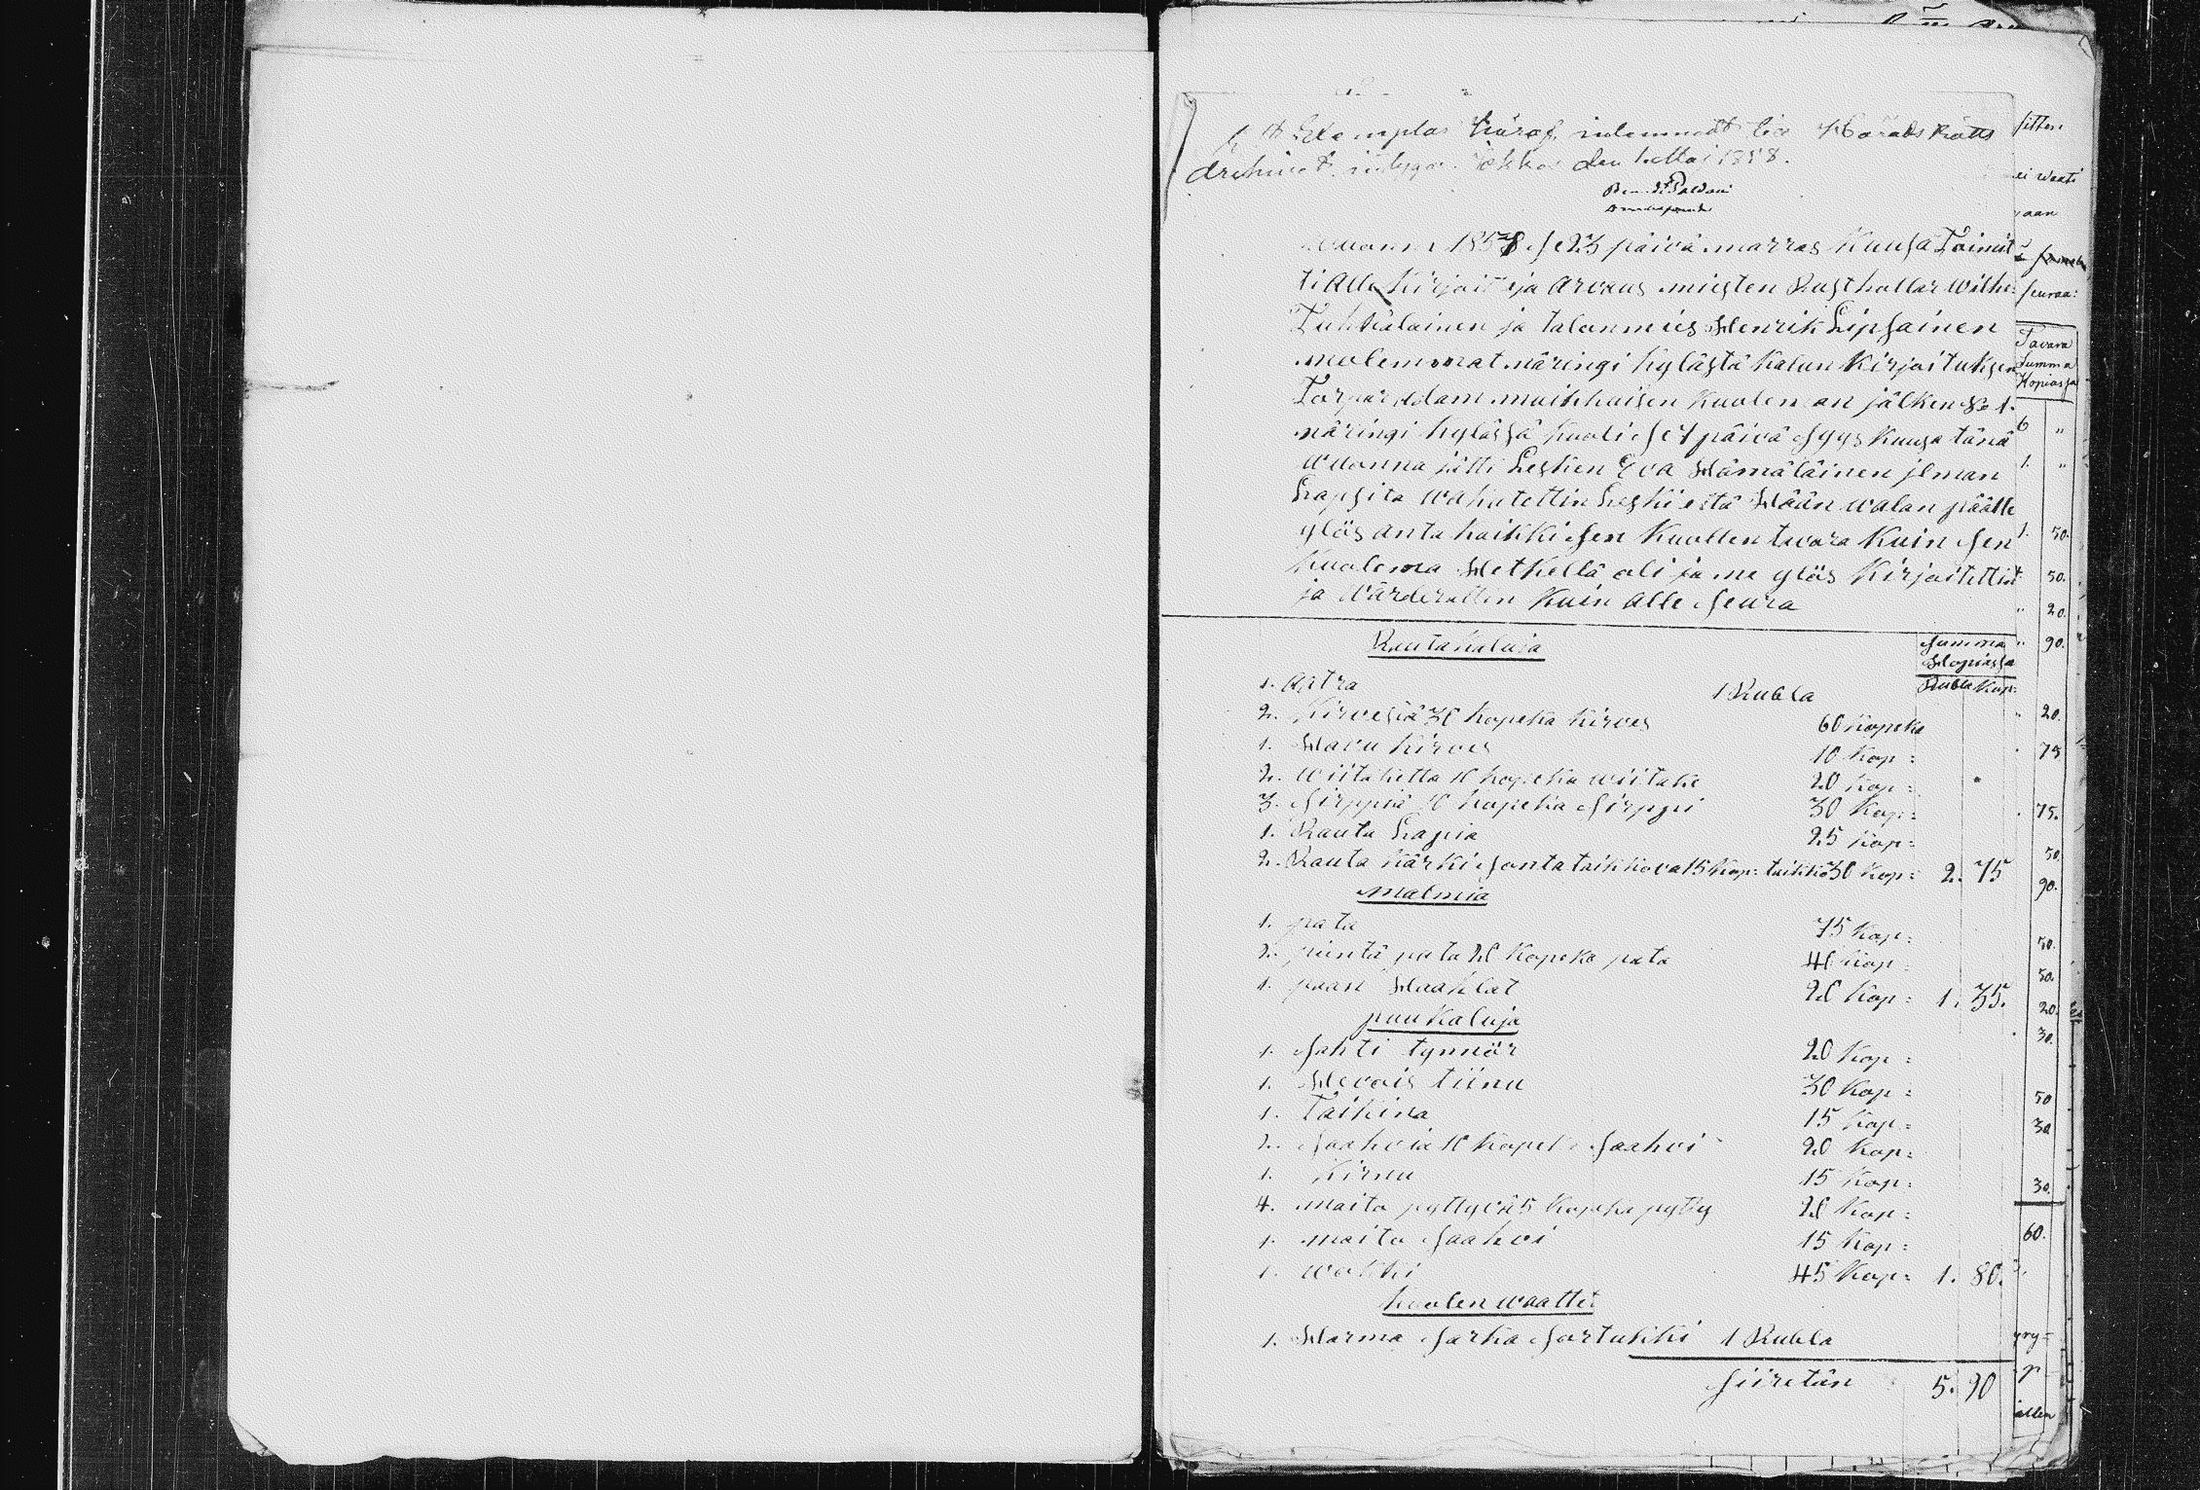 Exemplar häraf inlemnadt Härads Rätts
Archivet den 1 Mai 1858.
1858 se 23 päivä marras Kuusa Toimit
ti Alle Kirjoit ja Arvaus miesten Rusthollar Wilhe
Tuhkalainen ja talonmies Henrik Lipsainen
molemmat näringi kylästä kalun Kirjoituksen
Torpar Adam muikkaisen Kuoleman jälken
näringi kylässä kuoli se 4 päivä syys Kuusa tänä
Wuonna jätti Lesken Eva Hämäläinen ilman
Lapsita wahutettin Leskiestä Hään walan päälle
ylös anta kaikki sen Kuollen tavara Kuin sen
Kuolema Hetkellä oli ja ne ylös Kirjoitettin
ja Wärderattin Kuin alle seura
Rautakaluja
Summa
Hopiassa
Rubla Kop:
1. Atra 1 Rubla
2. Kirvesiä 30 kopeka kirves 60 kopeka
1. Havu kirves 10 Kop:
2. wiitaketta 10 kopeka wiitake 20 kop:
3. sirppiä 10 kopeka sirppi 30 Kop:
1. Rauta Lapia 25 kop:
2. Rauta kärki sonta taikkova 15 kop: taikko 30 kop: 2. 75
malmia
1. pata 75 Kop:
2. pientä pata 20 Kopeka pata 40 kop:
1. paan Haahlat 20 Kop: 1. 35.
puukaluja
1. Sahti tynnör 20 Kop:
1. Hevois tiinu 30 Kop:
1. Taikina 15 Kop:
2. Saahvia 10 kopek saahvi 20 Kop:
1. Kirnu 15 Kop:
4. maito pyttyvä 5 Kopeka pytty 20 Kop:
1. maito saahvi 15 Kop:
1. wakki 45 Kop: 1. 80.
kuolen waattet
1. Harma sarka sortukki 1 Rubla
siiretän 5. 90
sitten
ei waati
seuraa:
Tavara
Summa
Hopiassa
6 "
1. "
1. 50.
50.
" 20.
" 90.
20.
75
75.
50.
90.
50.
50.
20.
30.
50
30
30.
60.